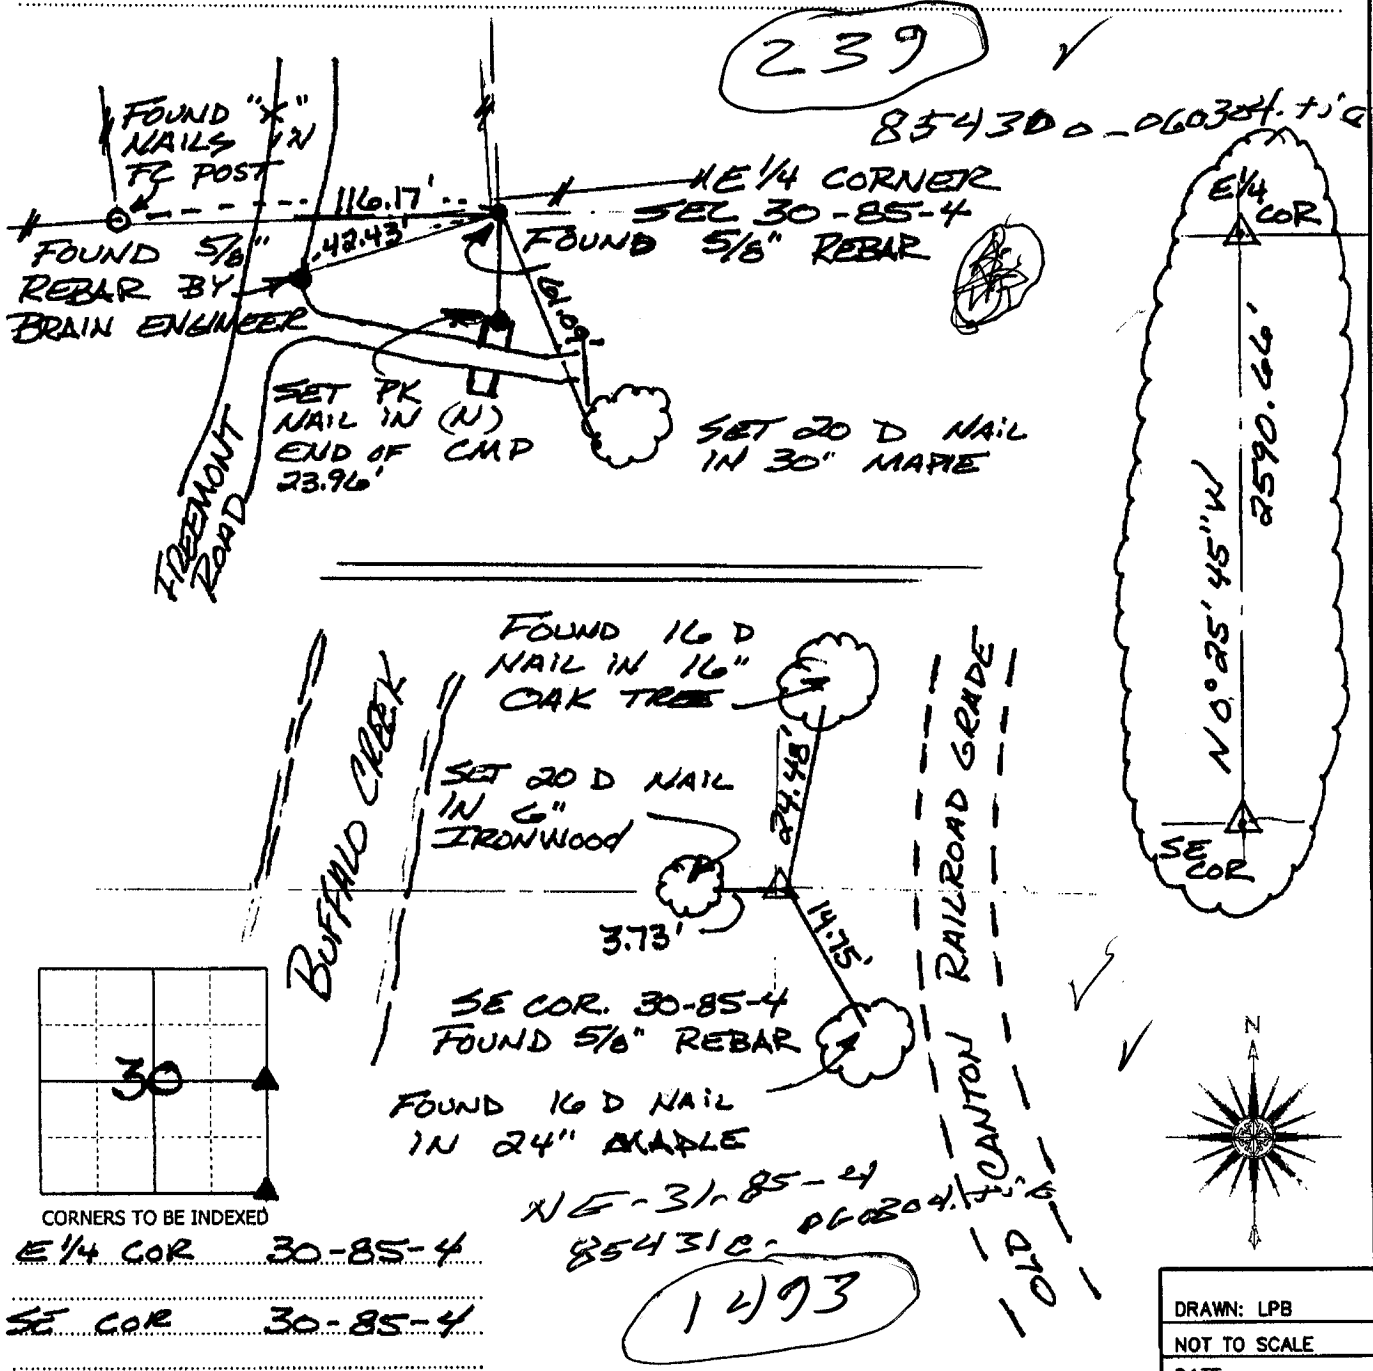 239
FOUND "X"
NAILS IN
FC POST
116.17'
42.43'
E 1/4 CORNER
SEC 30-85-4
FOUND 5/8" REBAR
FOUND 5/8"
REBAR BY
BRAIN ENGINEER
61.09'
SET PK
NAIL IN (N)
END OF CMP
23.96'
SET 20 D NAIL
IN 30" MAPLE
ROAD
E 1/4
COR
2590.66'
N 0° 25' 45" W
SE
COR
FOUND 16 D
NAIL IN 16"
OAK TREE
24.48'
SET 20 D NAIL
IN 6"
IRONWOOD
3.73'
14.75'
BUFFALO CREEK
OLD CANTON RAILROAD GRADE
SE COR. 30-85-4
FOUND 5/8" REBAR
FOUND 16 D NAIL
IN 24" MAPLE
NE-31-85-4
1493
30
CORNERS TO BE INDEXED
E 1/4 COR 30-85-4
SE COR 30-85-4
N
DRAWN: LPB
NOT TO SCALE